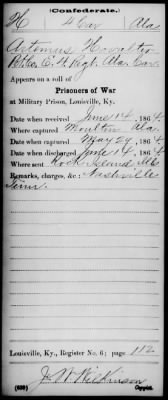 (Confederate.)
H 4 Cav Ala.
Artemus
Pvt Co. C. 4 Regt. Ala. Cav.
Appears on a roll of
Prisoners of War
at Military Prison, Louisville, Ky.
Date when received June 14, 1864.
Where captured Moulton Ala
Date when captured May 29, 1864.
Date when discharged June 14, 1864.
Where sent Rock Island Ills
Remarks, charges, &c.: Nashville
Tenn.
Louisville, Ky., Register No. 6; page 112
J. W. Wilkinson
(639) Copyist.